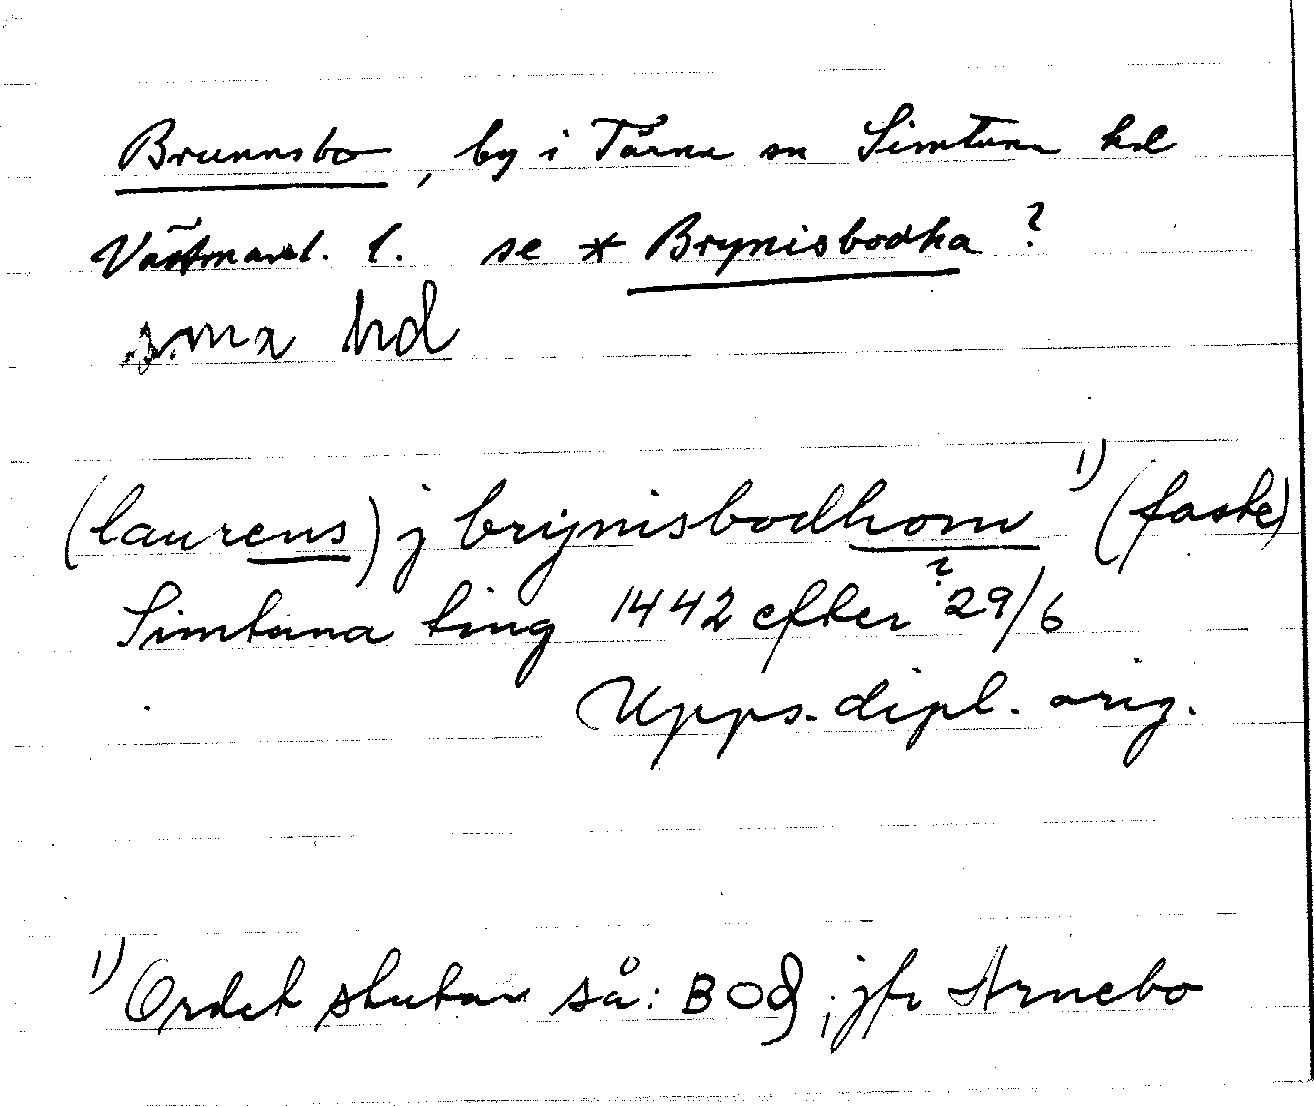 Brunnsbo, by i Tärna sn Simtuna hd
Västmanl. l. se * Brynisbodha ?
hd
(laurens) j brynisbodhom 1) (faste)
Simtuna ting 1442 efter ? 29/6
Upps. dipl. orig.
1) Ordet slutar så: BOđ ; jfr Arnebo